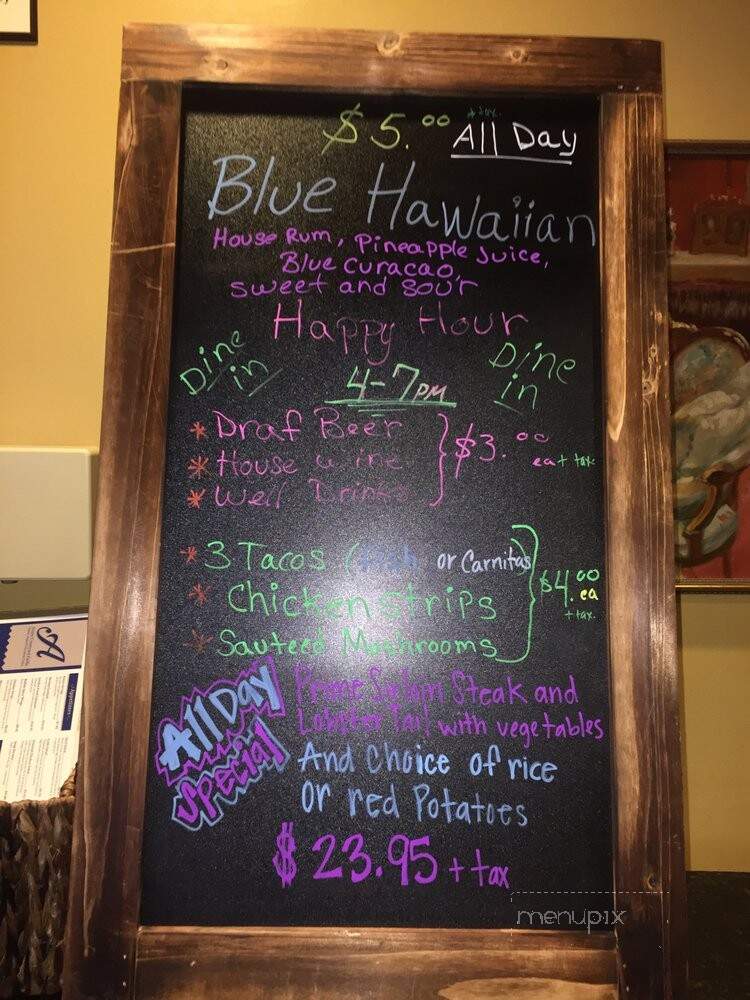 $5.00 + tax All Day
Blue Hawaiian
House Rum, Pineapple Juice,
Blue Curacao,
Sweet and Sour
Happy Hour
Dine in
Dine in
4-7 PM
* Draf Beer
* House wine
* Well Drinks
$3.00
ea + tax
* 3 Tacos (Fish or Carnitas
* Chicken Strips
* Sauteed Mushrooms
$4.00
ea
+ tax.
All Day
Special
Prime Sirloin Steak and
Lobster Tail with vegetables
And Choice of rice
or red Potatoes
$23.95 + tax
menupix
A